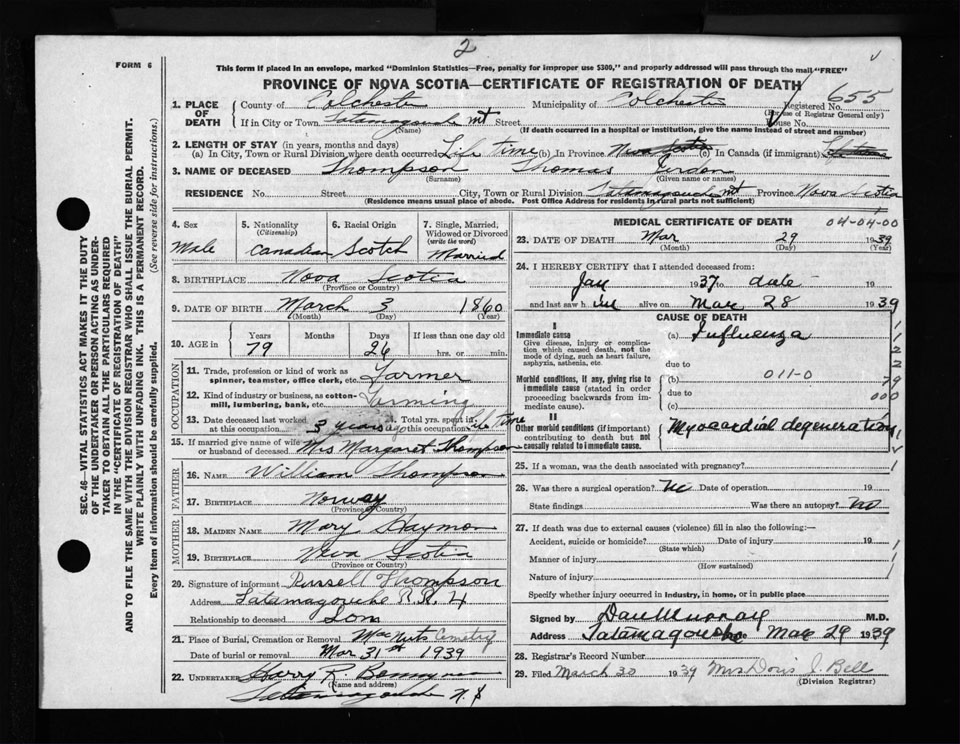 2
FORM 6
This form if placed in an envelope, marked "Dominion Statistics—Free, penalty for improper use $300," and properly addressed will pass through the mail "FREE"
PROVINCE OF NOVA SCOTIA—CERTIFICATE OF REGISTRATION OF DEATH
Registered No. 655
(For use of Registrar General only)
1. PLACE OF DEATH
County of Colchester Municipality of Colchester
If in City or Town Tatamagouche Mt Street House No.
(Name) (If death occurred in a hospital or institution, give the name instead of street and number)
2. LENGTH OF STAY (in years, months and days)
(a) In City, Town or Rural Division where death occurred Life Time (b) In Province Nova Scotia (c) In Canada (if immigrant)
3. NAME OF DECEASED Thompson Thomas
(Surname) (Given name or names)
RESIDENCE No. Street City, Town or Rural Division Tatamagouche Mt Province Nova Scotia
(Residence means usual place of abode. Post Office Address for residents in rural parts not sufficient)
4. Sex
Male
5. Nationality
(Citizenship)
Canadian
6. Racial Origin
Scotch
7. Single, Married, Widowed or Divorced
(write the word)
Married
8. BIRTHPLACE Nova Scotia
(Province or Country)
9. DATE OF BIRTH March 3 1860
(Month) (Day) (Year)
10. AGE in
Years Months Days If less than one day old
79 26 hrs. or min.
OCCUPATION
11. Trade, profession or kind of work as spinner, teamster, office clerk, etc. Farmer
12. Kind of industry or business, as cotton-mill, lumbering, bank, etc. Farming
13. Date deceased last worked at this occupation 3 years ago 14. Total yrs. spent in this occupation Life Time
15. If married give name of wife or husband of deceased Mrs Margaret Thompson
FATHER
16. NAME William Thompson
17. BIRTHPLACE Norway
(Province or Country)
MOTHER
18. MAIDEN NAME Mary Haymon
19. BIRTHPLACE Nova Scotia
(Province or Country)
20. Signature of informant Russell Thompson
Address Tatamagouche R.R. 4
Relationship to deceased Son
21. Place of Burial, Cremation or Removal MacNuts Cemetry
Date of burial or removal Mar 31st 1939
22. UNDERTAKER Harry R.
(Name and address)
Tatamagouche N.S
MEDICAL CERTIFICATE OF DEATH 04-04-00
23. DATE OF DEATH Mar 29 1939
(Month) (Day) (Year)
24. I HEREBY CERTIFY that I attended deceased from:
Jan 1937 to date 19
and last saw him alive on Mar 28 1939
CAUSE OF DEATH
I
Immediate cause
Give disease, injury or complication which caused death, not the mode of dying, such as heart failure, asphyxia, asthenia, etc.
(a) Influenza
due to
Morbid conditions, if any, giving rise to immediate cause (stated in order proceeding backwards from immediate cause).
(b) 011-0
due to
(c)
1
1
2
2
79
000
II
Other morbid conditions (if important) contributing to death but not causally related to immediate cause.
Myocardial degeneration
25. If a woman, was the death associated with pregnancy?
26. Was there a surgical operation? No Date of operation 19
State findings Was there an autopsy? no
27. If death was due to external causes (violence) fill in also the following:—
Accident, suicide or homicide? Date of injury 19
(State which)
Manner of injury
(How sustained)
Nature of injury
Specify whether injury occurred in Industry, in home, or in public place
Signed by Dan Murray M.D.
Address Tatamagouche Mar 29 1939
28. Registrar's Record Number
29. Filed March 30 1939 Mrs Doris J. Bell
(Division Registrar)
SEC. 46—VITAL STATISTICS ACT MAKES IT THE DUTY
OF THE UNDERTAKER OR PERSON ACTING AS UNDER-
TAKER TO OBTAIN ALL THE PARTICULARS REQUIRED
IN THE "CERTIFICATE OF REGISTRATION OF DEATH"
AND TO FILE THE SAME WITH THE DIVISION REGISTRAR WHO SHALL ISSUE THE BURIAL PERMIT.
WRITE PLAINLY WITH UNFADING INK. THIS IS A PERMANENT RECORD.
Every item of information should be carefully supplied. (See reverse side for instructions.)